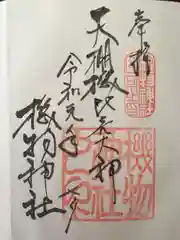 奉拝
天棚機比売大神
令和元年七夕
機物神社
機物神社